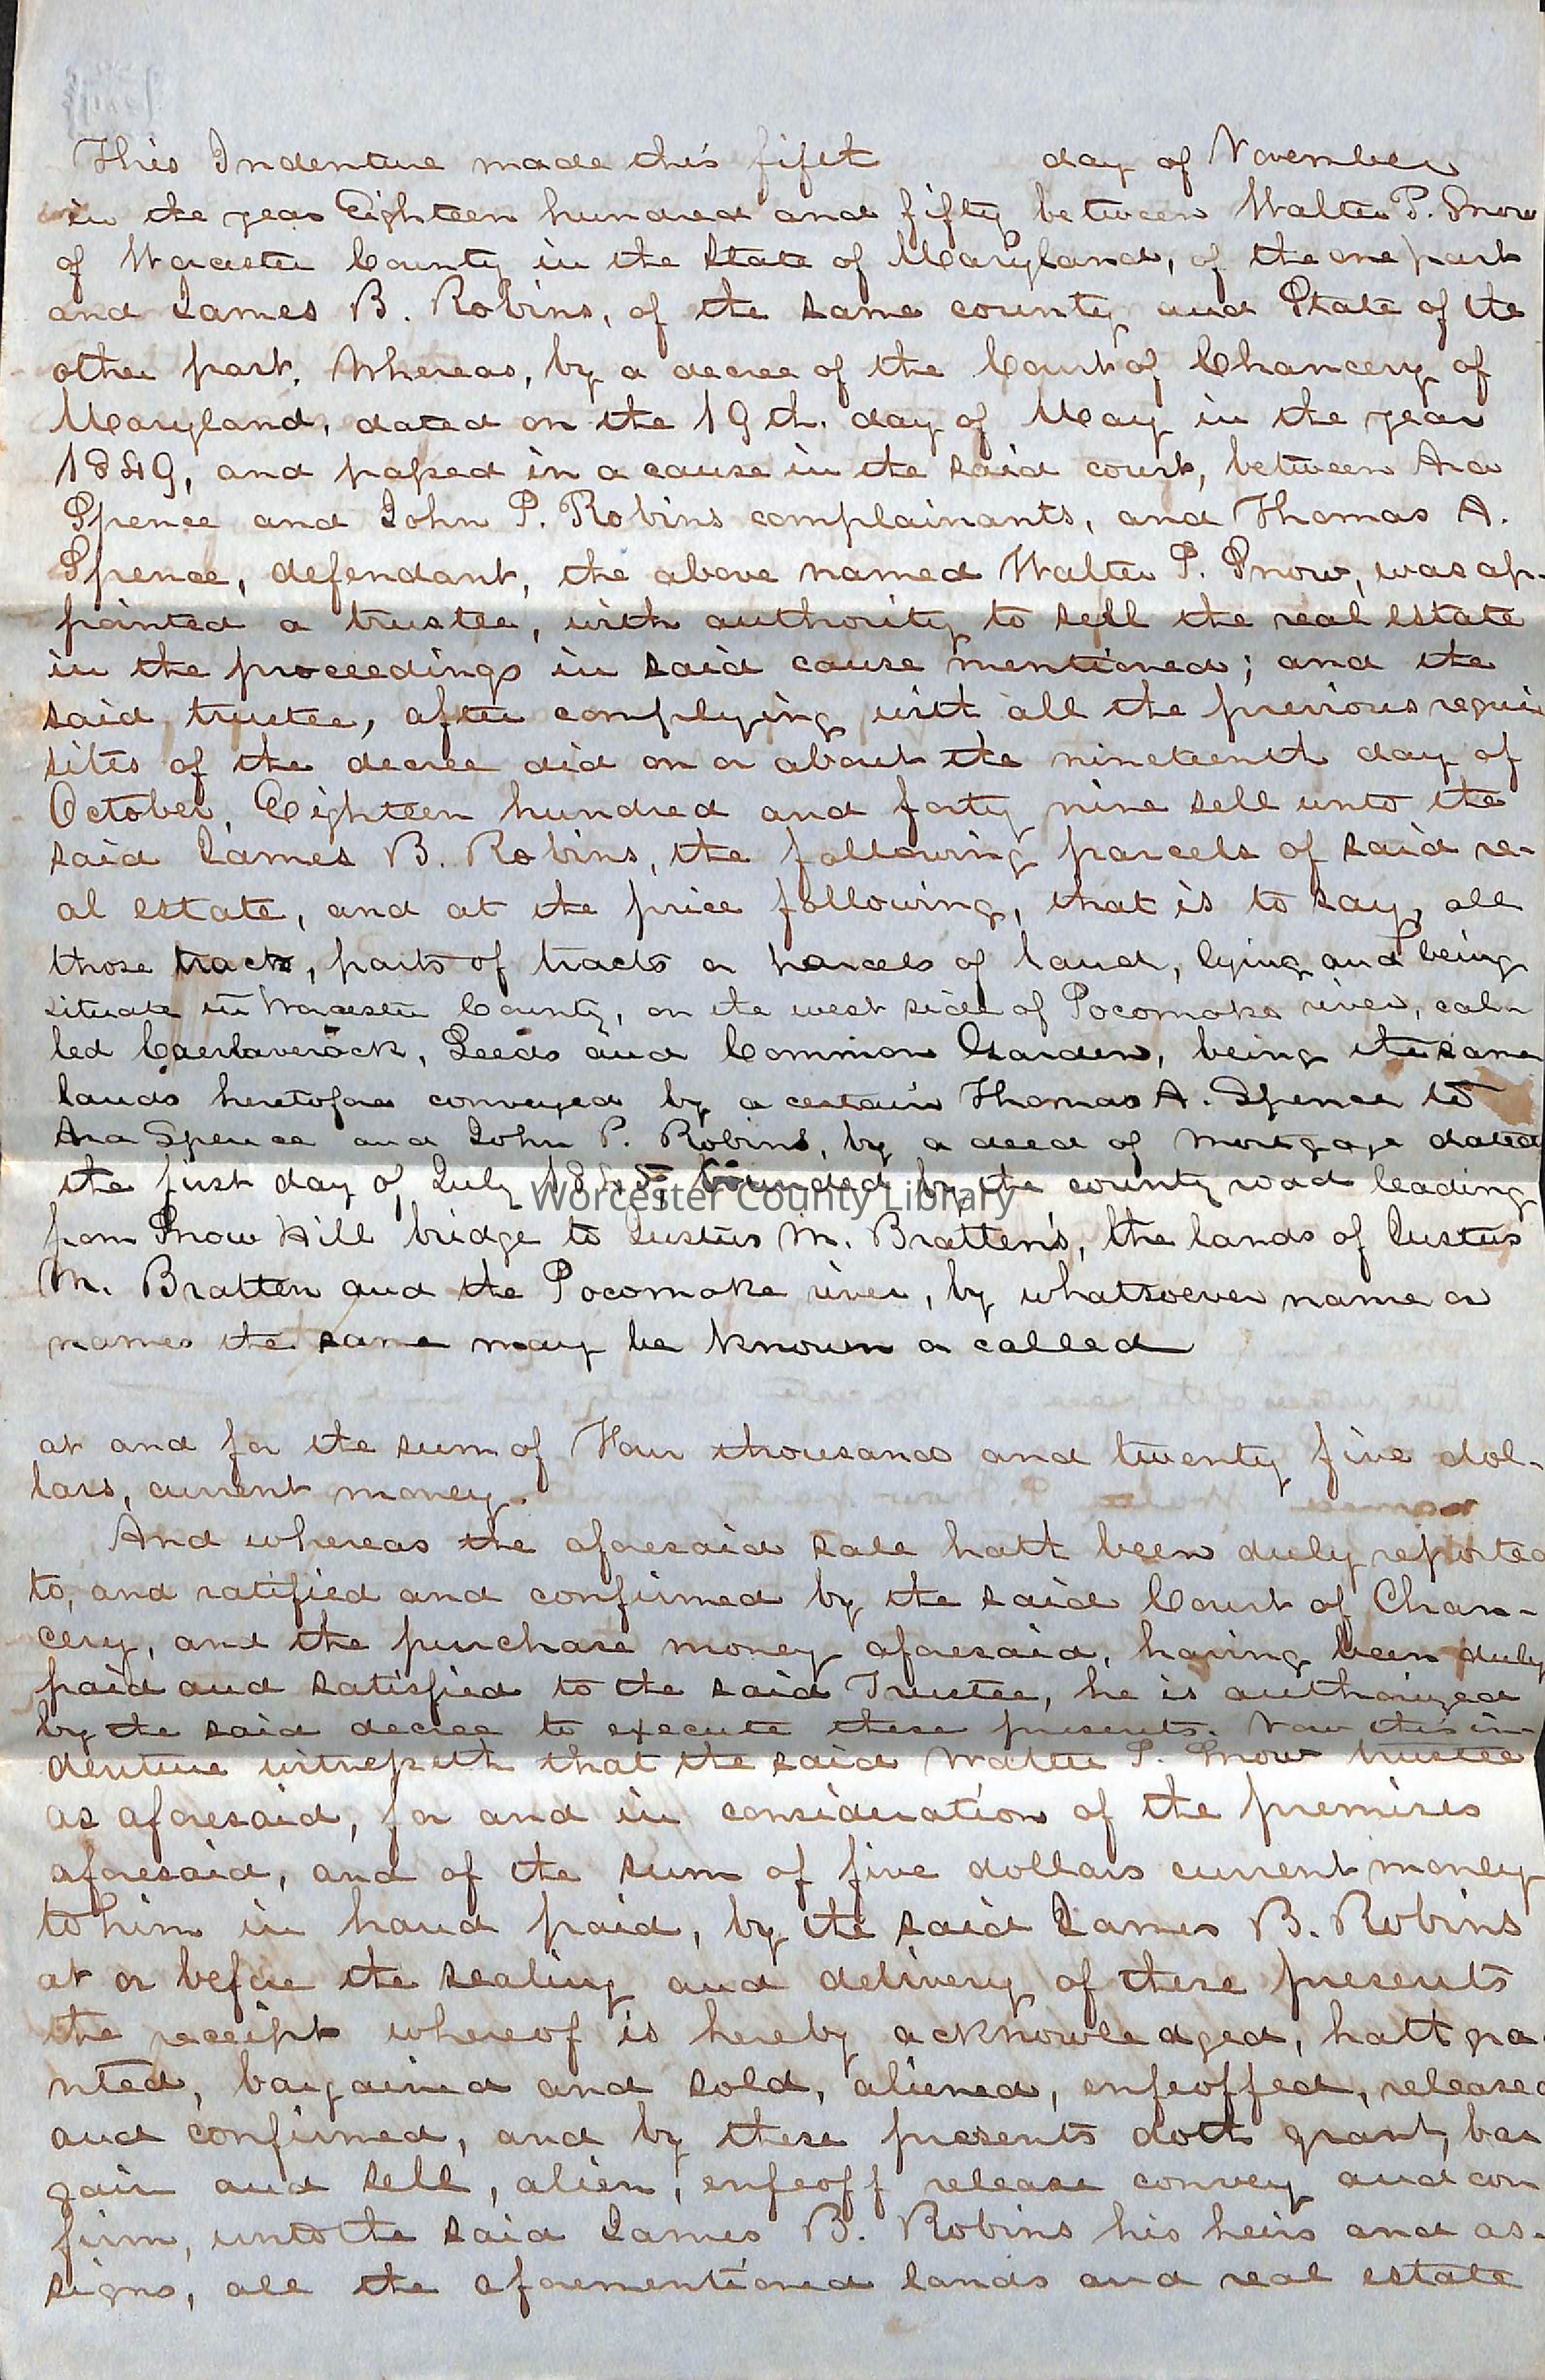 This Indenture made this fifth day of November
in the year Eighteen hundred and fifty between Walter P. Snow
of Worcester County in the State of Maryland, of the one part
and James B. Robins, of the same county and State of the
other part. Whereas, by a decree of the Court of Chancery of
Maryland, dated on the 19th. day of May in the year
1849, and passed in a cause in the said court, between Ara
Spence and John P. Robins complainants, and Thomas A.
Spence, defendant, the above named Walter P. Snow, was ap-
pointed a trustee, with authority to sell the real estate
in the proceedings in said cause mentioned; and the
said trustee, after complying with all the previous requi
sites of the decree did on or about the nineteenth day of
October, Eighteen hundred and forty nine sell unto the
said James B. Robins, the following parcels of said re-
al estate, and at the price following, that is to say, all
those tracts, parts of tracts or parcels of land, lying and being
situate in Worcester County, on the west side of Pocomoke river, cal
led Caerlaverock, Leeds and Common Garden, being the same
lands heretofore conveyed by a certain Thomas A. Spence to
Ara Spence and John P. Robins, by a deed of mortgage dated
the first day of July bounded by the county road leading
Worcester County Library
from Snow Hill bridge to Justus M. Bratten's, the lands of Justus
M. Bratten and the Pocomoke river, by whatsoever name or
names the same may be known or called
at and for the sum of Four thousand and twenty five dol-
lars, current money.
And whereas the aforesaid sale hath been duly reported
to, and ratified and confirmed by the said Court of Chan-
cery, and the purchase money aforesaid, having been duly
paid and satisfied to the said Trustee, he is authorized
by the said decree to execute these presents. Now this in-
denture witnesseth that the said Walter P. Snow trustee
as aforesaid, for and in consideration of the premises
aforesaid, and of the sum of five dollars current money
to him in hand paid, by the said James B. Robins
at or before the sealing and delivery of these presents
the receipt whereof is hereby acknowledged, hath gra
nted, bargained and sold, aliened, enfeoffed, released
and confirmed, and by these presents doth grant, bar
gain and sell, alien, enfeoff release convey and con
firm, unto the said James B. Robins his heirs and as-
signs, all the aforementioned lands and real estate